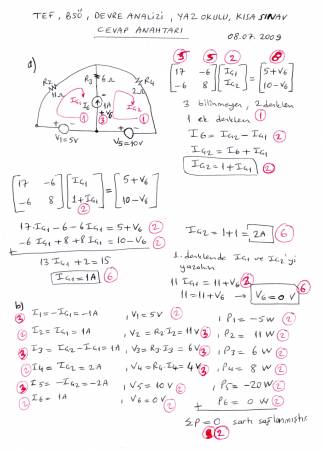 TEF, BSÖ, DEVRE ANALİZİ, YAZ OKULU, KISA SINAV
CEVAP ANAHTARI
08.07.2009
a)
R2 11Ω R3 6Ω R4 2Ω
IG1 I6 1A V6 IG2
1 3 1
V1=5V V5=10V
3 5 2 8
[17 -6; -6 8] [IG1; IG2] = [5+V6; 10-V6]
3 bilinmeyen, 2 denklem
1 ek denklem 1
I6 = IG2 - IG1 2
IG2 = I6 + IG1
IG2 = 1 + IG1 2
[17 -6; -6 8] [IG1; 1+IG1] = [5+V6; 10-V6]
2
17 IG1 - 6 - 6 IG1 = 5+V6 2
+ -6 IG1 + 8 + 8 IG1 = 10-V6 2
13 IG1 + 2 = 15
IG1 = 1A 6
IG2 = 1+1 = 2A 6
1. denklemde IG1 ve IG2'yi
yazalım
11 IG1 = 11+V6 2
11 = 11+V6 → V6 = 0 V 6
b)
3 I1 = -IG1 = -1A , V1 = 5V 2 , P1 = -5W 2
2 I2 = IG1 = 1A , V2 = R2·I2 = 11V 3 , P2 = 11W 2
3 I3 = IG2 - IG1 = 1A , V3 = R3·I3 = 6V 3 , P3 = 6W 2
2 I4 = IG2 = 2A , V4 = R4·I4 = 4V 3 , P4 = 8W 2
3 I5 = -IG2 = -2A , V5 = 10V 2 , P5 = -20W 2
2 I6 = 1A , V6 = 0V 2 + P6 = 0W 2
ΣP = 0 şartı sağlanmıştır.
2